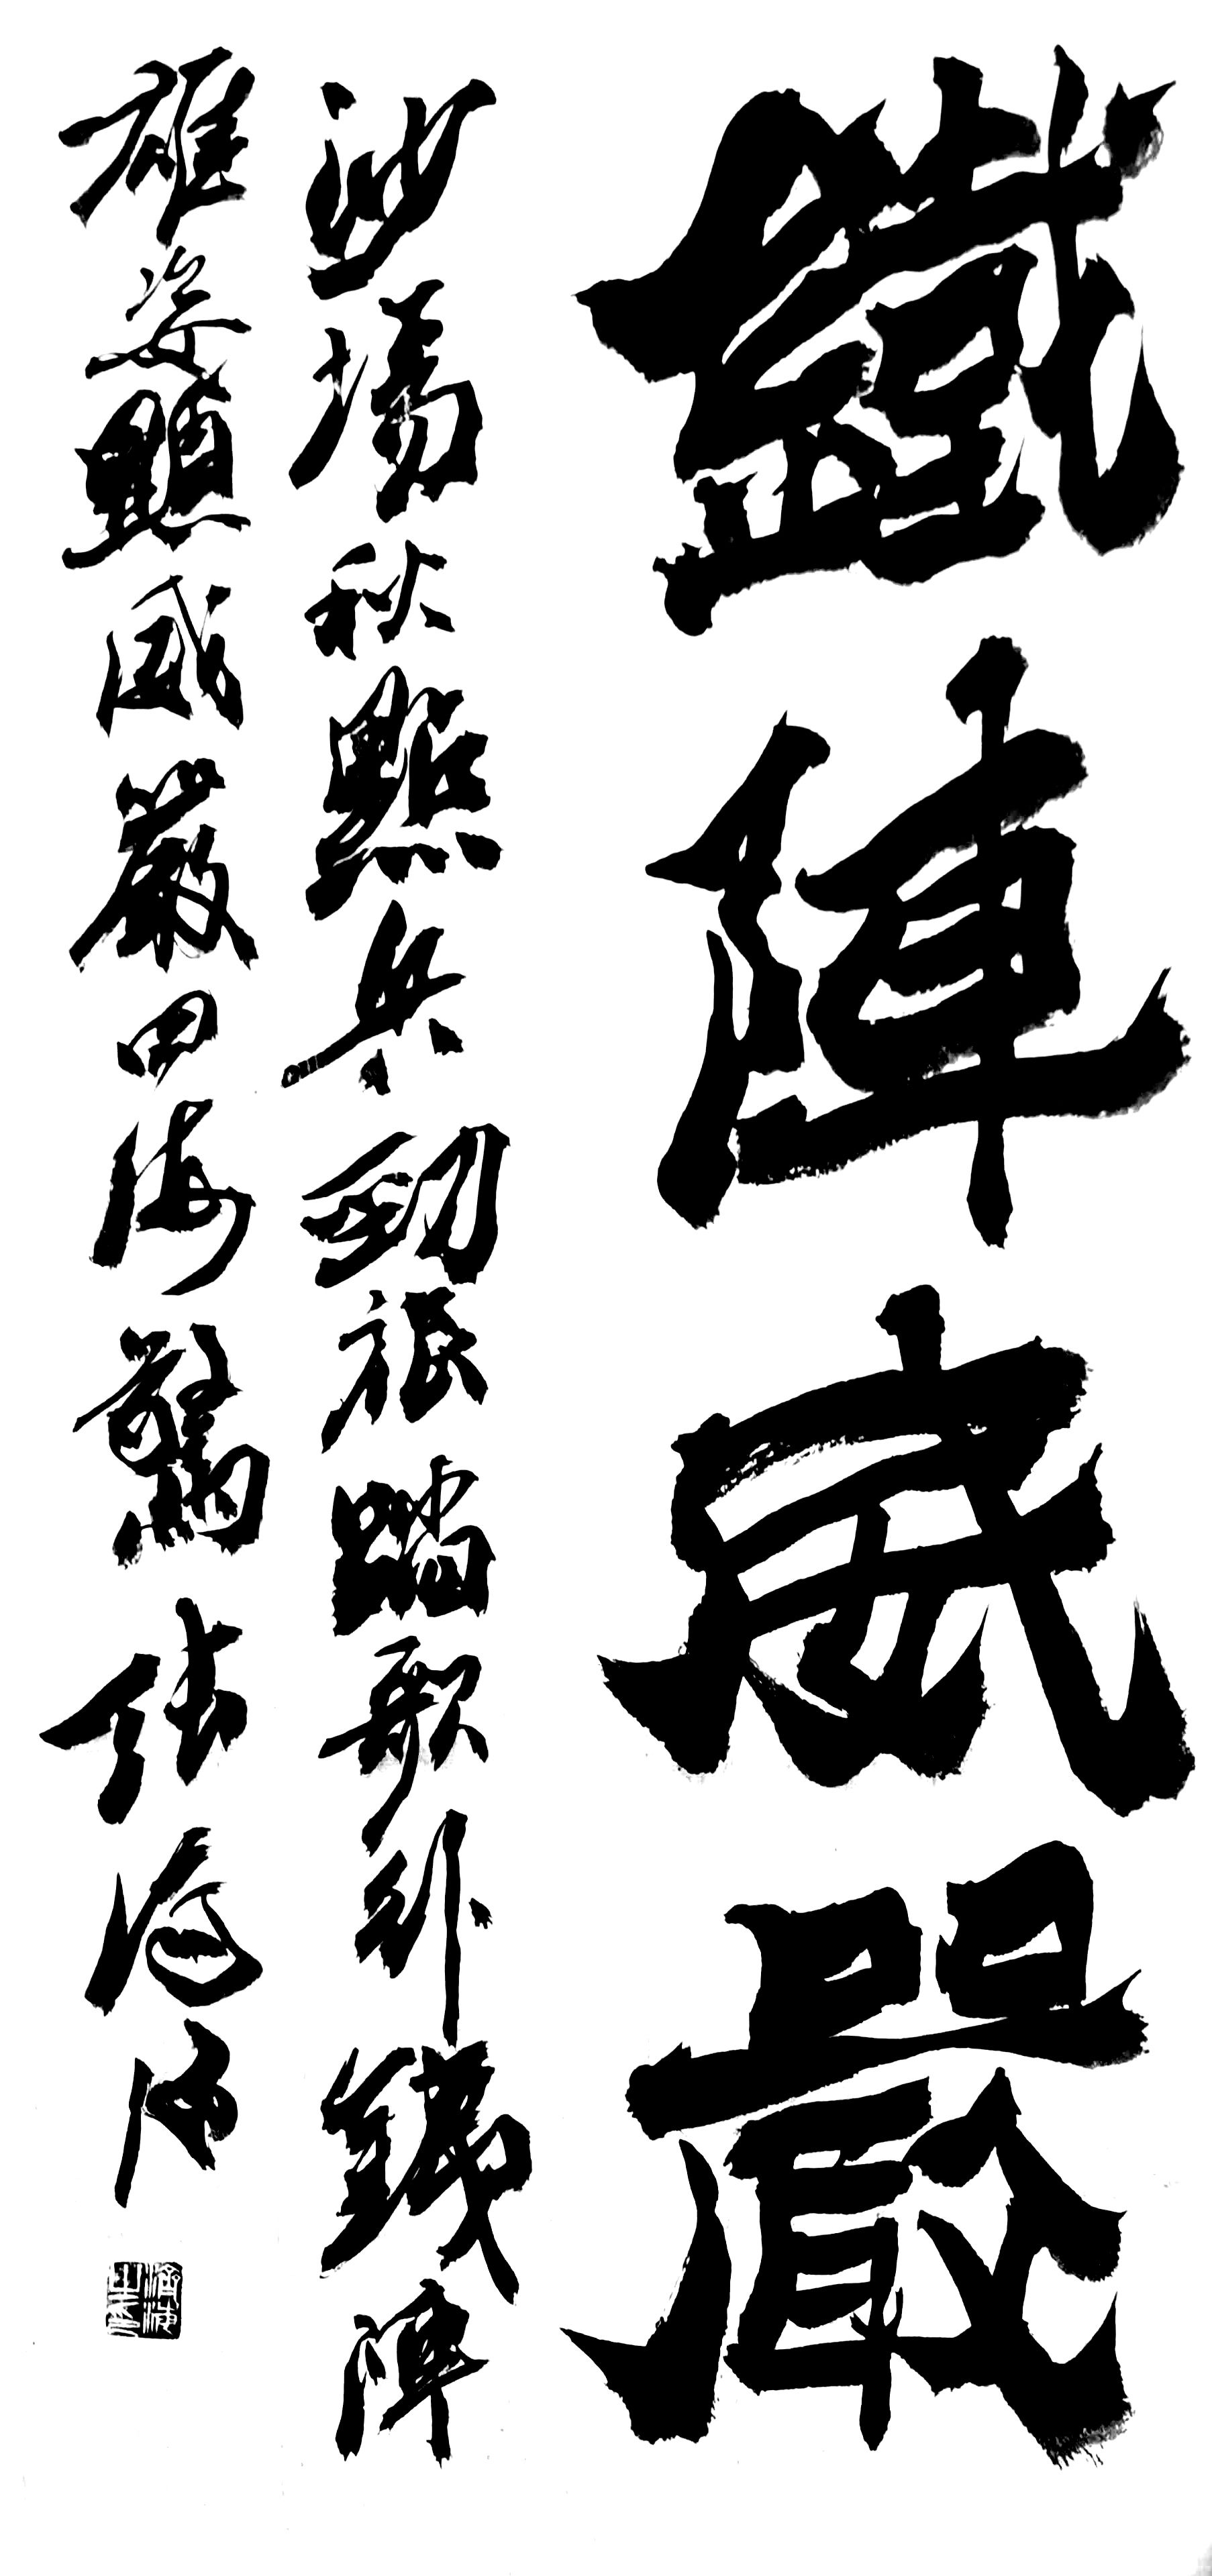 鐵陣威嚴
沙場秋點兵勁旅踏歌行鐵陣
雄姿顯威嚴四海驚張濟海
濟海之印